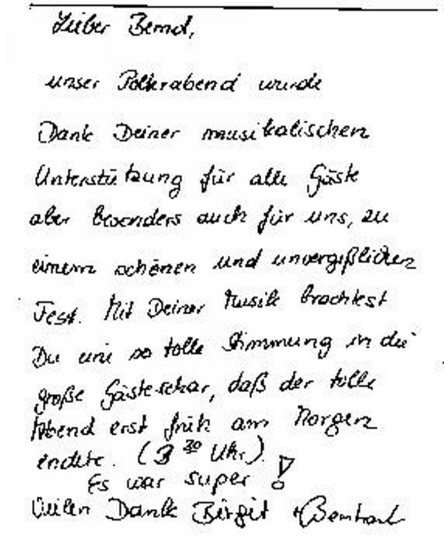 Lieber Bernd,
unser Polterabend wurde
Dank Deiner musikalischen
Unterstützung für alle Gäste
aber besonders auch für uns, zu
einem schönen und unvergeßlichen
Fest. Mit Deiner Musik brachtest
Du eine so tolle Stimmung in die
große Gästeschar, daß der tolle
Abend erst früh am Morgen
endete. (3 30 Uhr).
Es war super!
Vielen Dank Birgit + Bernhard